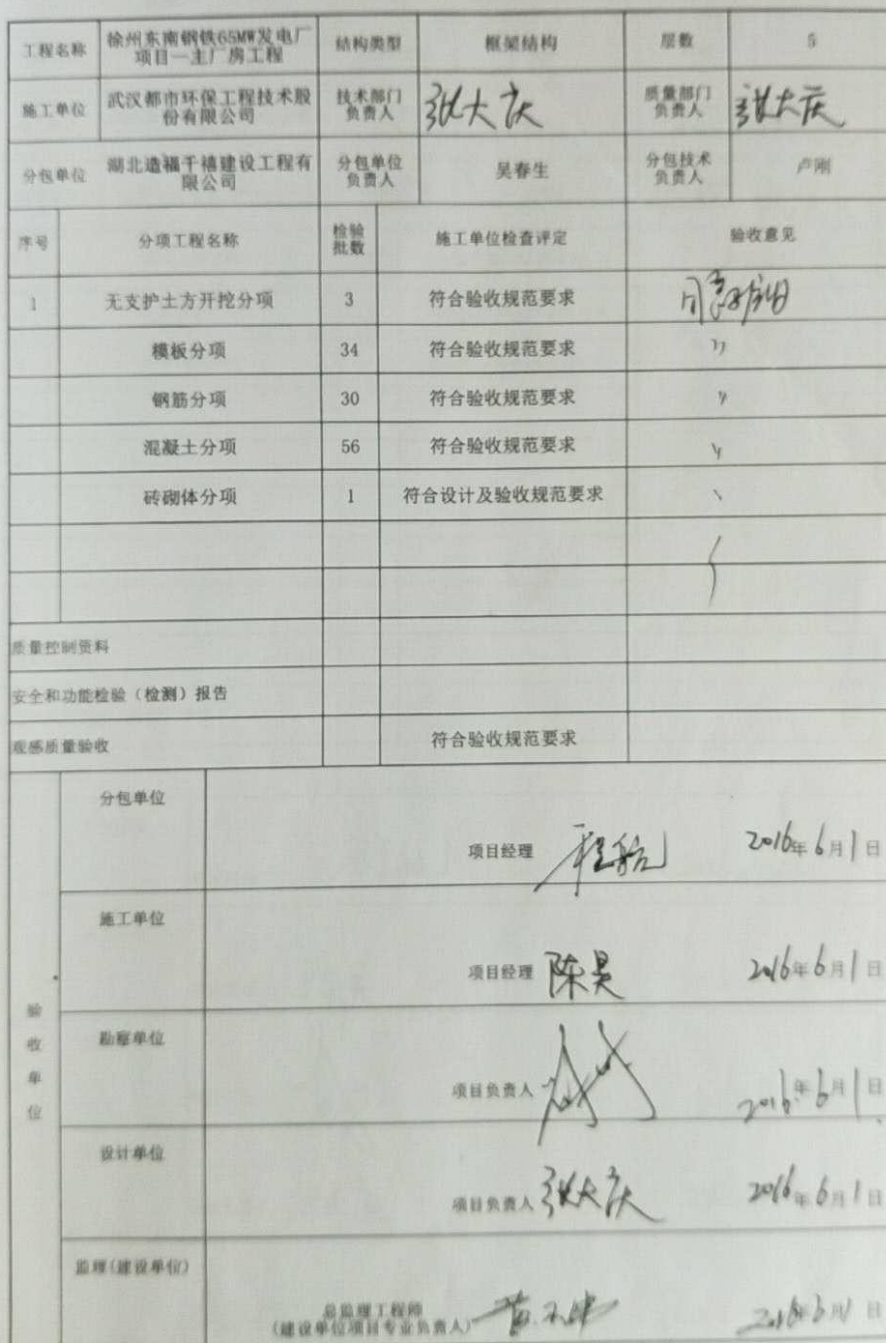 工程名称 徐州东南钢铁65MW发电厂 结构类型 框架结构 层数 5
项目—主厂房工程
施工单位 武汉都市环保工程技术股 技术部门 张大庆 质量部门 张大庆
份有限公司 负责人 负责人
分包单位 湖北造福千禧建设工程有 分包单位 吴春生 分包技术 卢刚
限公司 负责人 负责人
序号 分项工程名称 检验 施工单位检查评定 验收意见
批数
1 无支护土方开挖分项 3 符合验收规范要求
模板分项 34 符合验收规范要求 〃
钢筋分项 30 符合验收规范要求 〃
混凝土分项 56 符合验收规范要求 〃
砖砌体分项 1 符合设计及验收规范要求
质量控制资料
安全和功能检验（检测）报告
观感质量验收 符合验收规范要求
验收单位
分包单位
项目经理 程航 2016年6月1日
施工单位
项目经理 陈昊 2016年6月1日
勘察单位
项目负责人 2016年6月1日
设计单位
项目负责人 张大庆 2016年6月1日
监理(建设单位)
总监理工程师
(建设单位项目专业负责人) 2016年6月1日